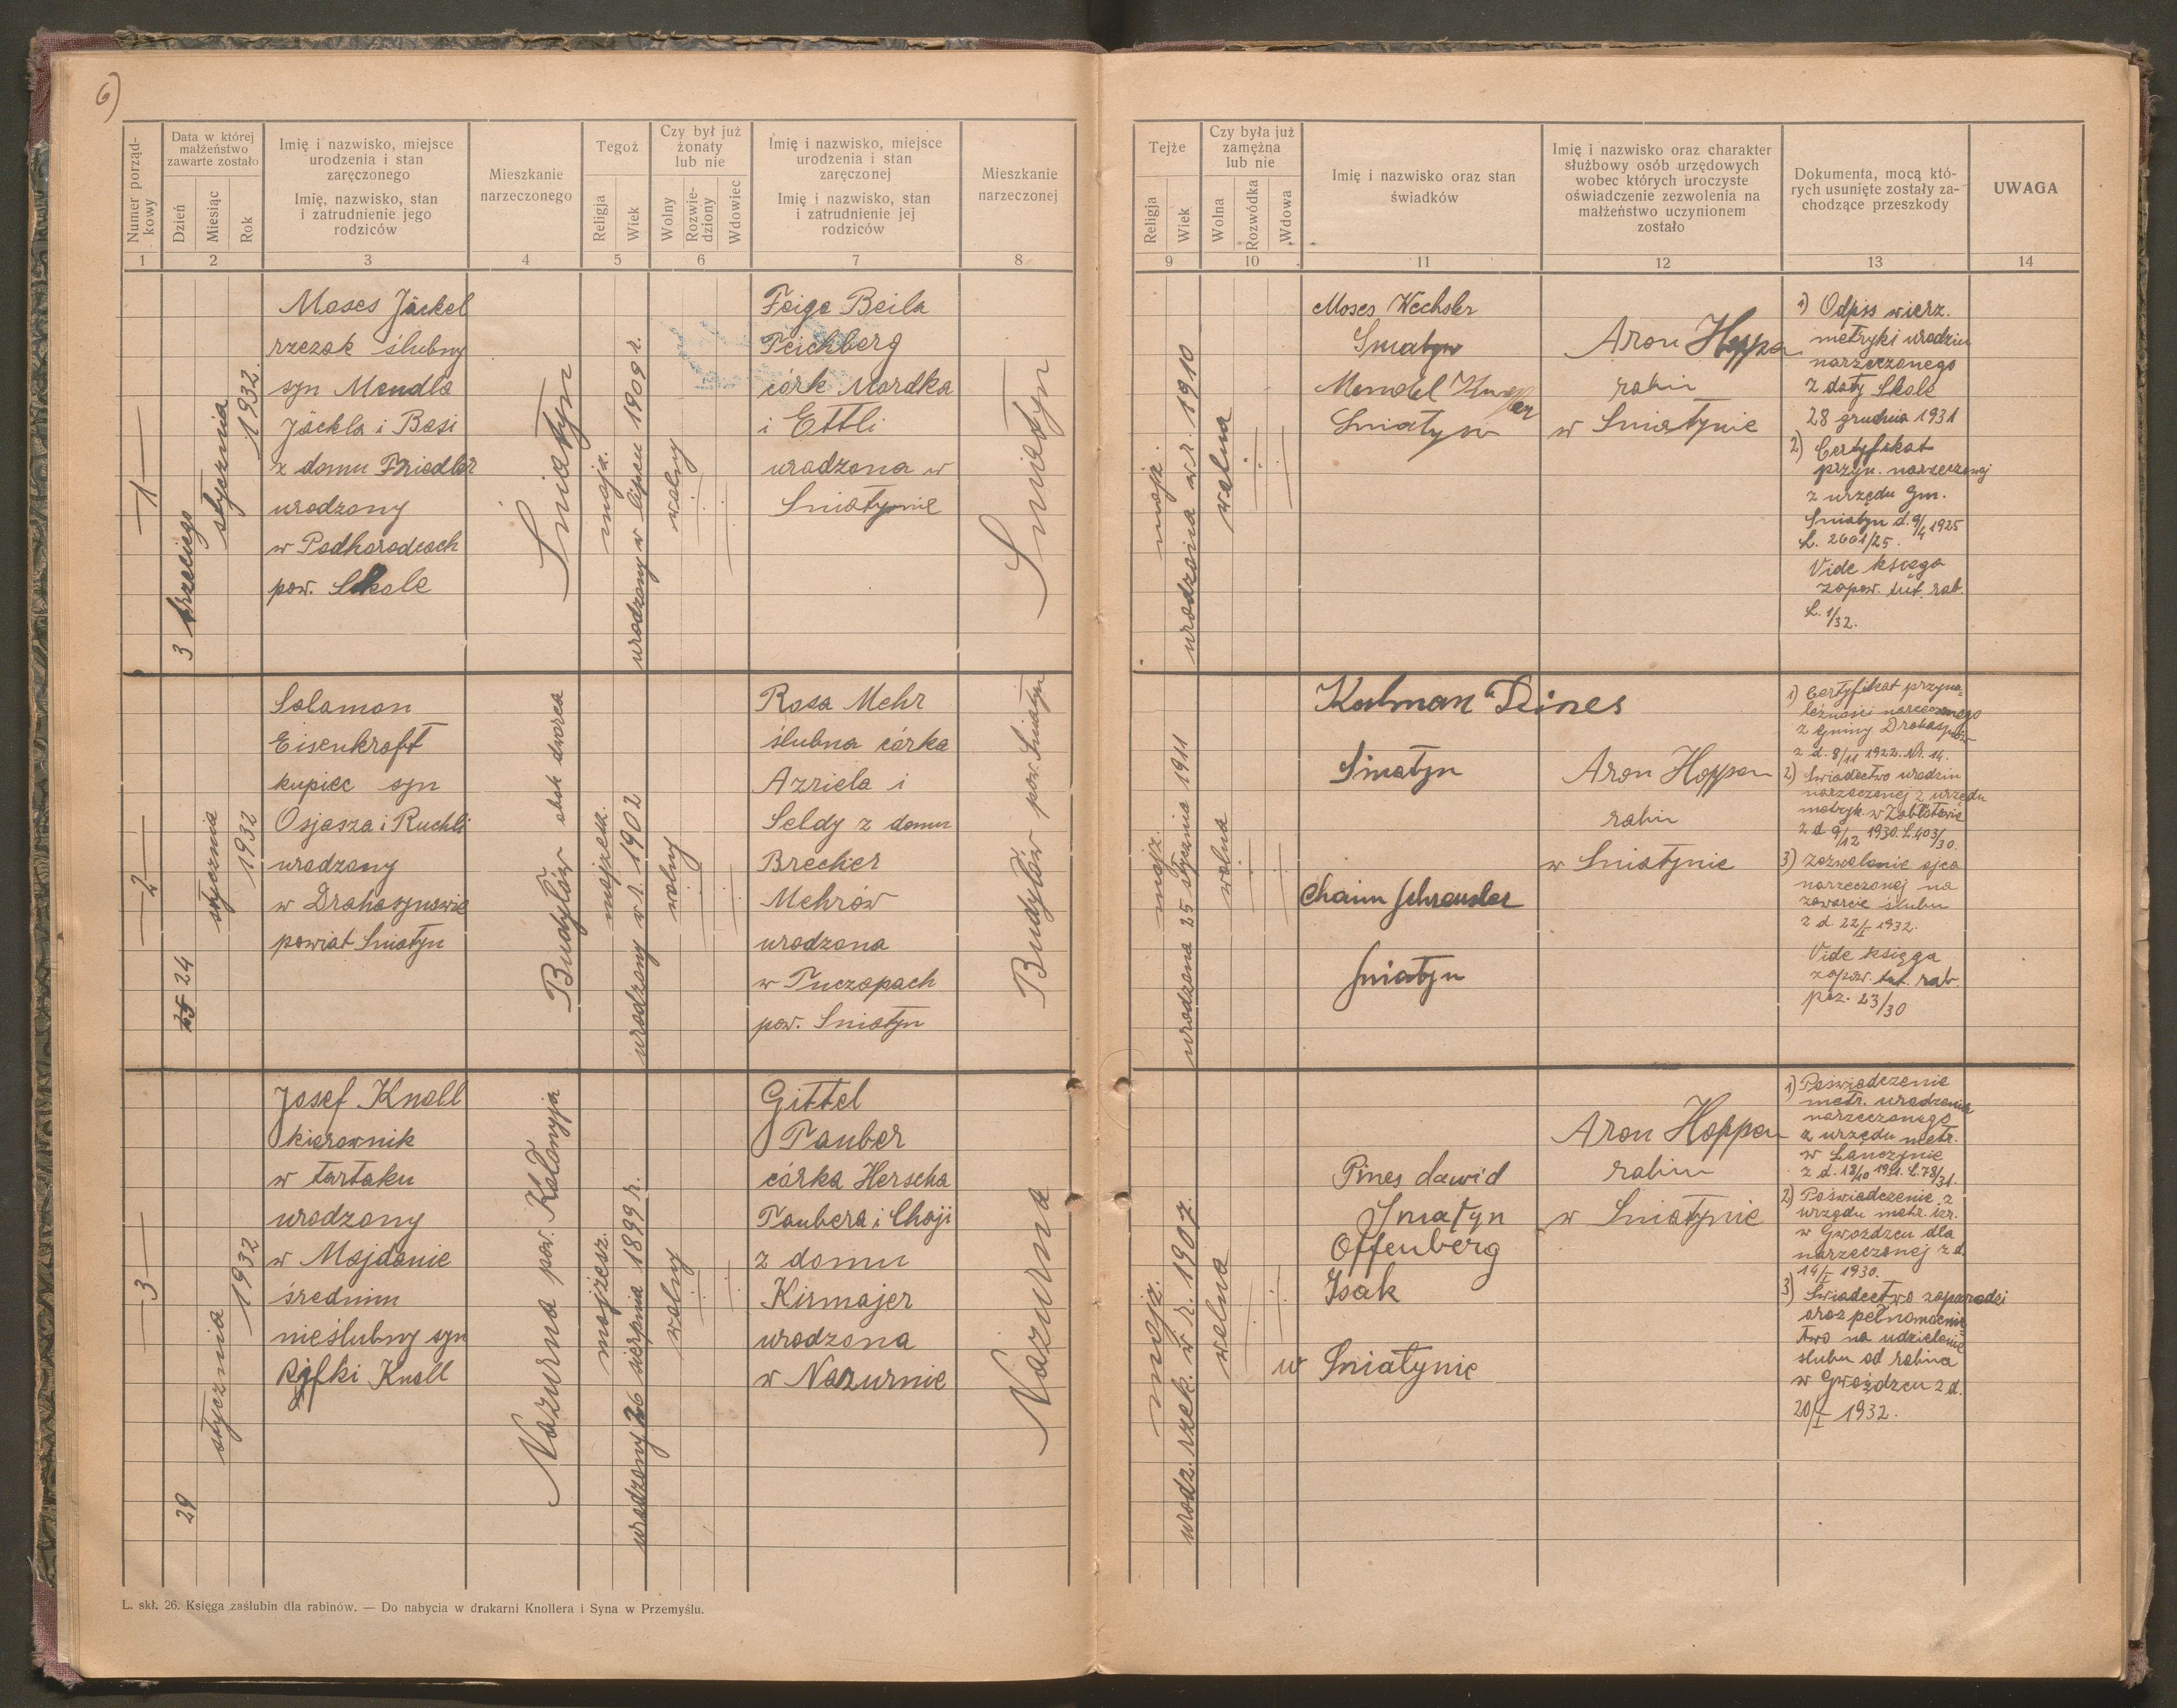 6)
Numer porząd-
kowy
Data w której
małżeństwo
zawarte zostało
Dzień
Miesiąc
Rok
Imię i nazwisko, miejsce
urodzenia i stan
zaręczonego
Imię, nazwisko, stan
i zatrudnienie jego
rodziców
Mieszkanie
narzeczonego
Tegoż
Religja
Wiek
Czy był już
żonaty
lub nie
Wolny
Rozwie-
dziony
Wdowiec
Imię i nazwisko, miejsce
urodzenia i stan
zaręczonej
Imię i nazwisko, stan
i zatrudnienie jej
rodziców
Mieszkanie
narzeczonej
Tejże
Religja
Wiek
Czy była już
zamężna
lub nie
Wolna
Rozwódka
Wdowa
Imię i nazwisko oraz stan
świadków
Imię i nazwisko oraz charakter
służbowy osób urzędowych
wobec których uroczyste
oświadczenie zezwolenia na
małżeństwo uczynionem
zostało
Dokumenta, mocą któ-
rych usunięte zostały za-
chodzące przeszkody
UWAGA
1 2 3 4 5 6 7 8 9 10 11 12 13 14
1
3 trzeciego
stycznia
1932.
Moses Jäckel
rzezak ślubny
syn Mendla
Jäckla i Basi
z domu Friedler
urodzony
w Podhorodcach
pow. Skole
Śniatyn
mojż.
urodzony w lipcu 1909 r.
wolny
Feige Beila
Teichberg
córk Mordka
i Ettli
urodzona w
Śniatynie
Śniatyn
mojż.
urodzona w r. 1910
wolna
Moses Wechsler
Śniatyn
Mendel
Śniatyn
Aron Hoppen
rabin
w Śniatynie
1) Odpis wierz.
metryki urodzin
narzeczonego
z daty Skole
28 grudnia 1931
2) Certyfikat
przyn. narzeczonej
z urzędu Gm.
Śniatyn d. 9/4 1925
L. 2661/25.
Vide księga
zapow. tut. rab.
L. 1/32.
2
25 24
stycznia
1932
Salamon
Eisenkraft
kupiec syn
Osjasza i Ruchli
urodzony
w Drahasymowie
powiat Śniatyn
Budyłów obok dworca
mojżesz.
urodzony w r. 1902
wolny
Rosa Mehr
ślubna córka
Azriela i
Seldy z domu
Brecher
Mehrów
urodzona
w Tuczapach
pow. Śniatyn
Budyłów pow. Śniatyn
mojż.
urodzona 25 stycznia 1911
wolna
Kalman Dines
Śniatyn
Chaim Schreuder
Śniatyn
Aron Hoppen
rabin
w Śniatynie
1) Certyfikat przyna-
leżności narzeczonego
z gminy Drahasymów
z d. 8/11 1922. Nr. 14.
2) Świadectwo urodzin
narzeczonej z urzędu
metryk. w Zabłotowie
z d 9/12 1930. L. 403/30.
3) zezwolenie ojca
narzeczonej na
zawarcie ślubu
z d 22/I 1932.
Vide księga
zapow. tut. rab.
poz. 23/30
3
29
stycznia
1932
Josef Knoll
kierownik
w tartaku
urodzony
w Majdanie
średnim
nieślubny syn
Ryfki Knoll
Nazurna pow. Kołomyja
mojżesz.
urodzony 26 sierpnia 1899 r.
wolny
Gittel
Tauber
córka Herscha
Taubera i Chaji
z domu
Kirmajer
urodzona
w Nazurnie
Nazurna
mojż.
urodz. rzek. w r. 1907.
wolna
Pines dawid
Śniatyn
Offenberg
Isak
w Śniatynie
Aron Hoppen
rabin
w Śniatynie
1) Poświadczenie
metr. urodzenia
narzeczonego
z urzędu metr.
w Łanczynie
z d. 18/10 1931. L. 78/31.
2) Poświadczenie z
urzędu metr. izr.
w Gwoźdzcu dla
narzeczonej z d.
14/I 1930.
3) Świadectwo zapowiedzi
oraz pełnomocnic-
two na udzielenie
ślubu od rabina
w Gwoźdzcu z d.
20/I 1932.
L. skł. 26. Księga zaślubin dla rabinów. — Do nabycia w drukarni Knollera i Syna w Przemyślu.